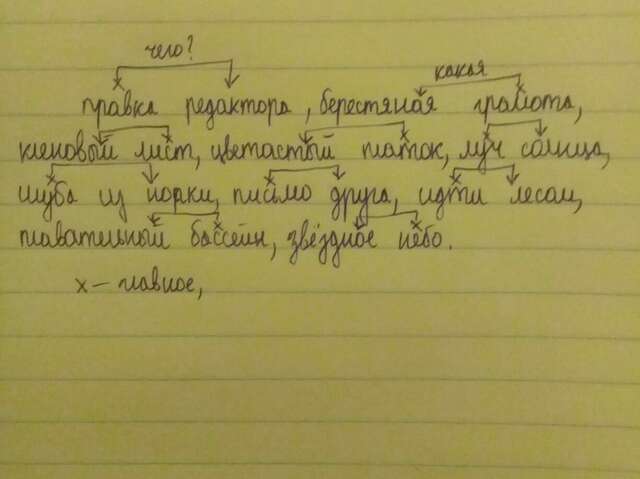 чего?
какая
правка редактора, берестяная грамота,
кленовый лист, цветастый платок, луч солнца,
шуба из норки, письмо друга, идти лесом,
плавательный бассейн, звёздное небо.
х – главное,